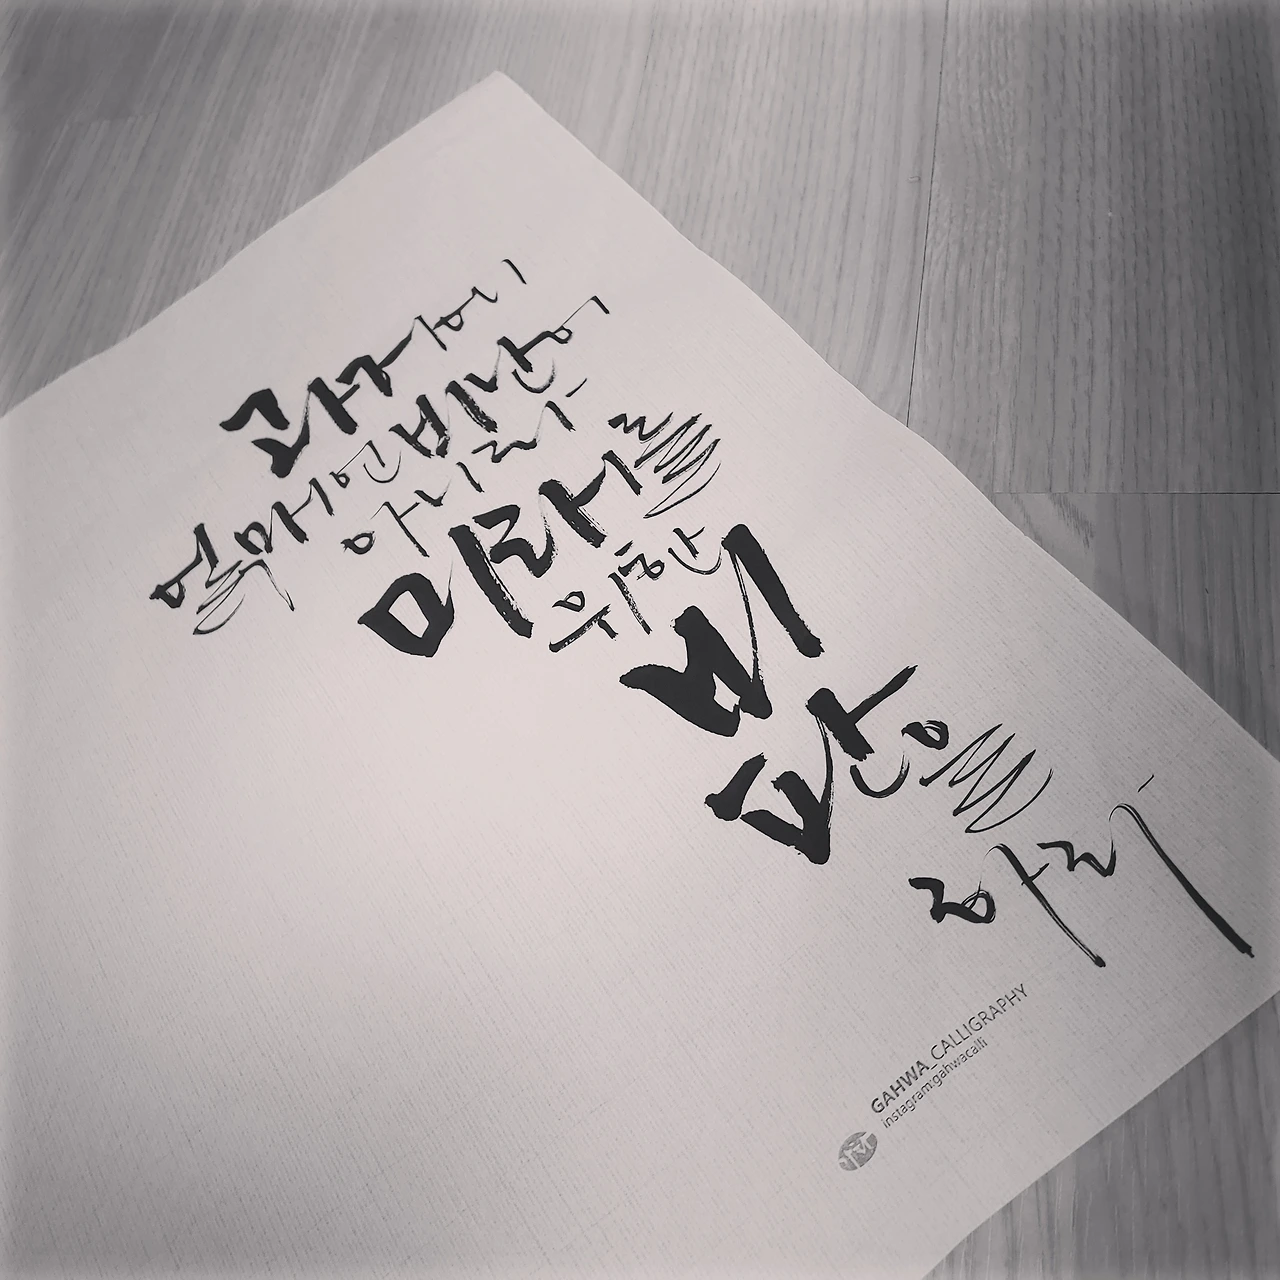 과거에
얽매인 비난이
아니라
미래를
위한
비
판을
하라
GAHWA_CALLIGRAPHY
instagram:gahwacalli